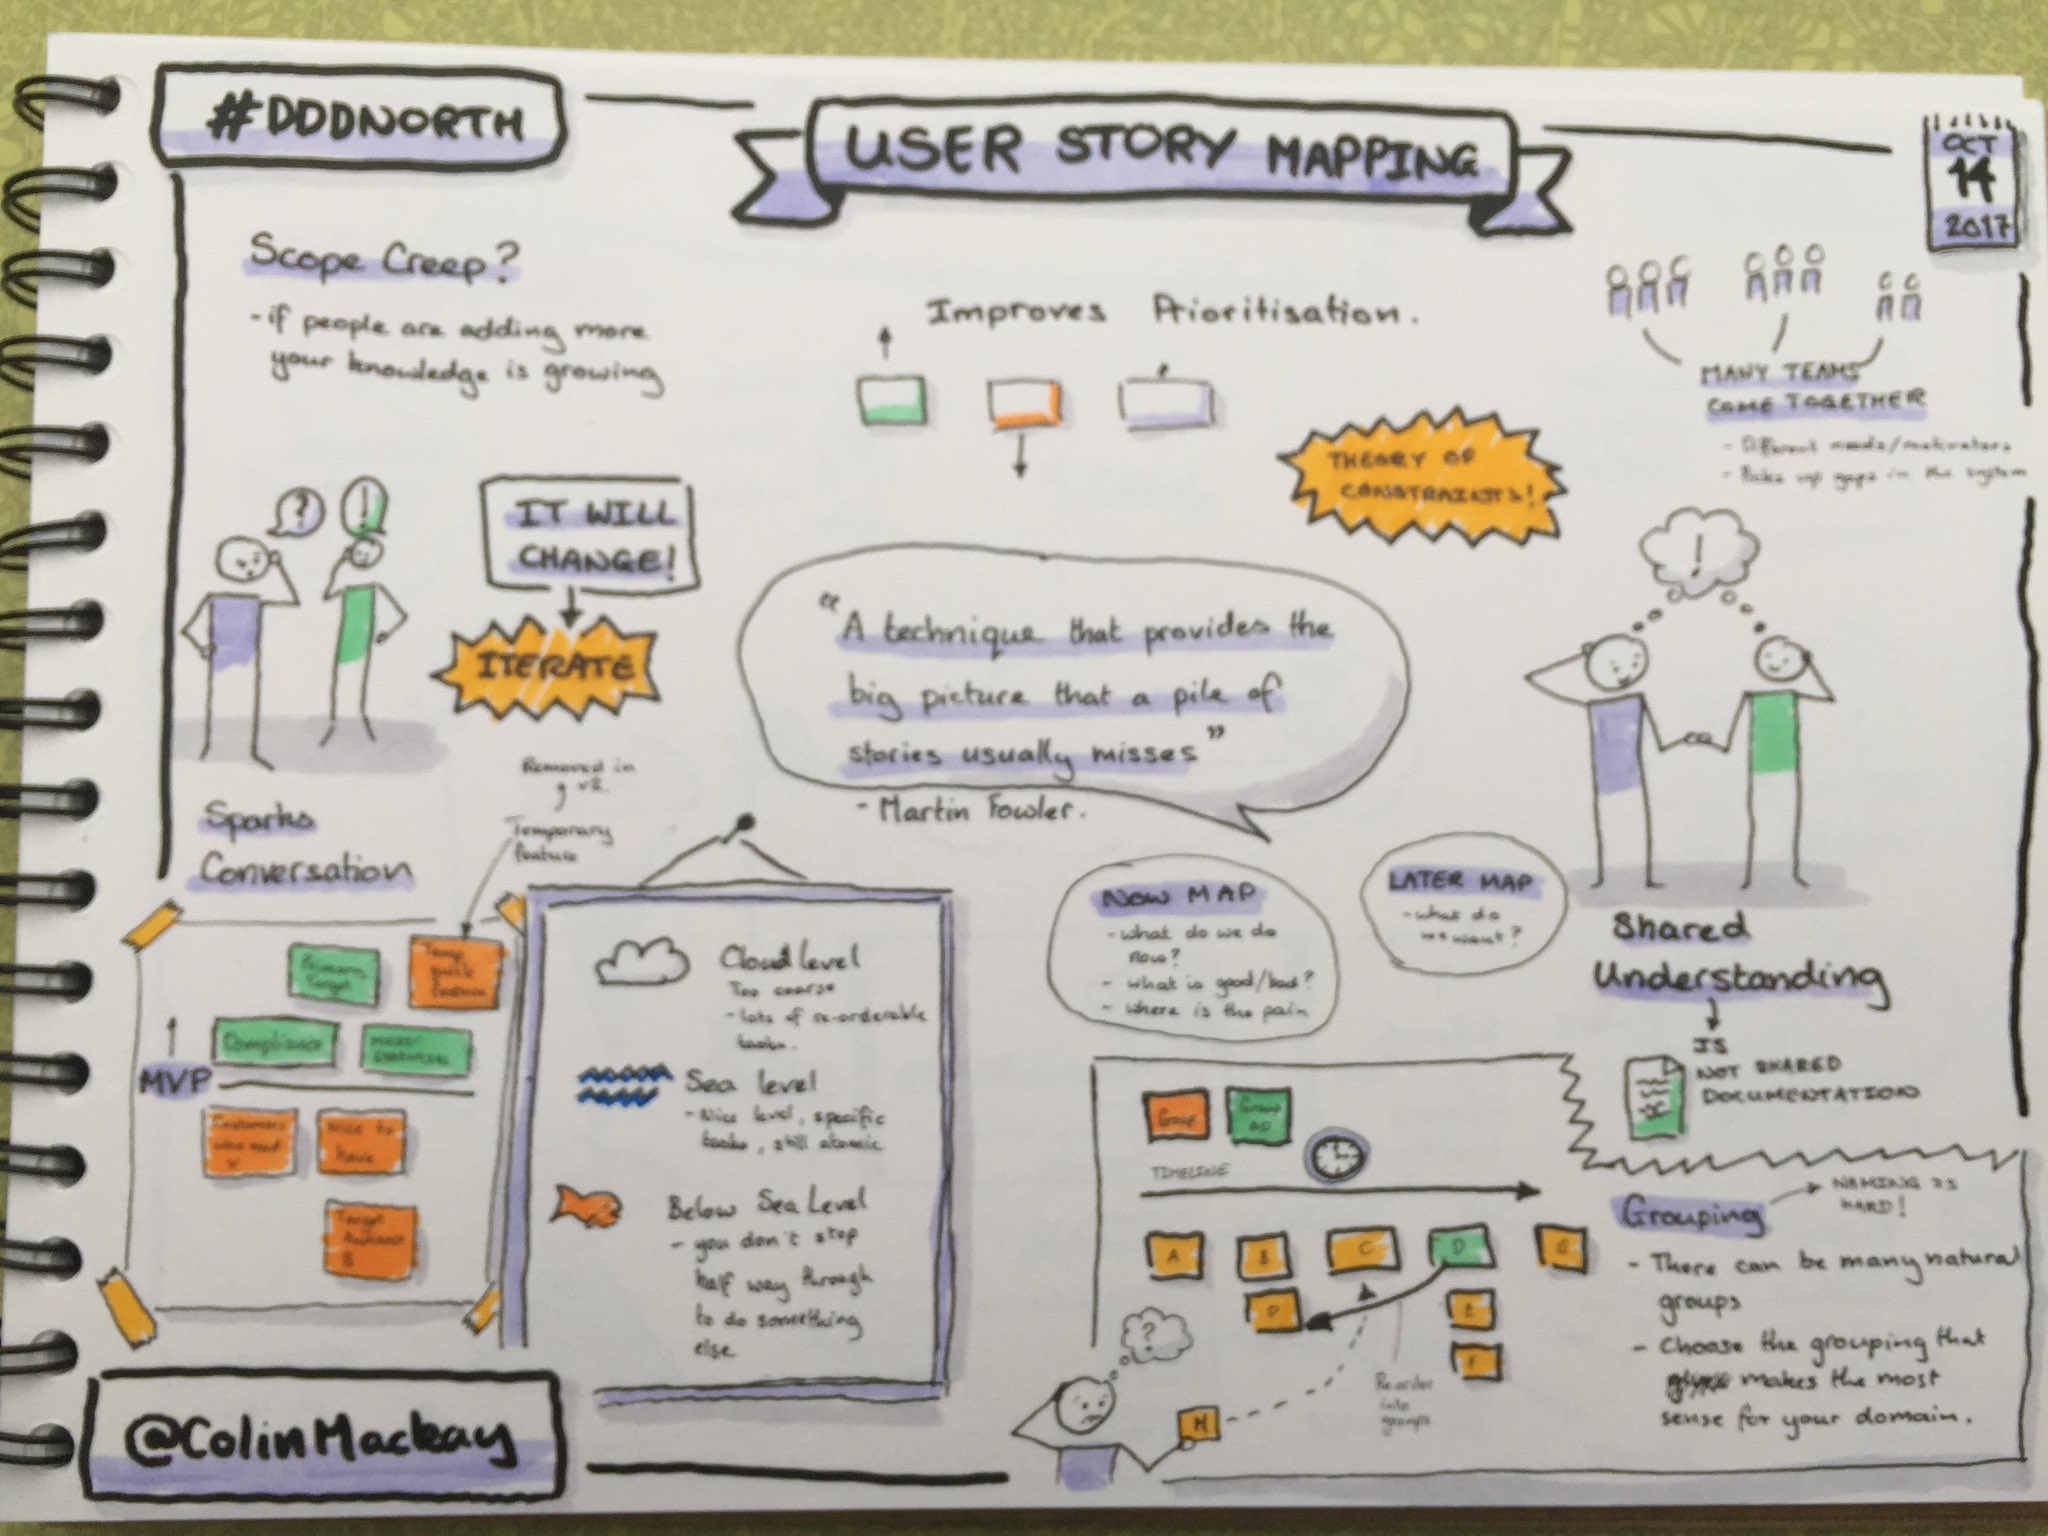 #DDDNORTH
USER STORY MAPPING
OCT
14
2017
Scope Creep?
- if people are adding more
your knowledge is growing
Improves Prioritisation.
MANY TEAMS
COME TOGETHER
- Different needs/motivators
- Picks up gaps in the system
THEORY OF
CONSTRAINTS!
?
!
IT WILL
CHANGE!
ITERATE
"A technique that provides the
big picture that a pile of
stories usually misses"
- Martin Fowler.
!
Sparks
Conversation
Removed in
v2.
Temporary
feature
Primary
Target
Temp
quick
feature
Compliance
MVP
Customers
who need
X
Nice to
have
Target
Audience
B
Cloud level
Too coarse
- lots of re-orderable
tasks.
Sea level
- Nice level, specific
tasks, still atomic
Below Sea Level
- you don't stop
half way through
to do something
else
NOW MAP
- what do we do
now?
- what is good/bad?
- where is the pain
LATER MAP
- what do
we want?
Shared
Understanding
IS
NOT SHARED
DOCUMENTATION
Group
Group
TIMELINE
A
B
C
D
G
D
E
F
?
H
Re-order
into
groups
Grouping
NAMING IS
HARD!
- There can be many natural
groups
- Choose the grouping that
makes the most
sense for your domain.
@ColinMackay